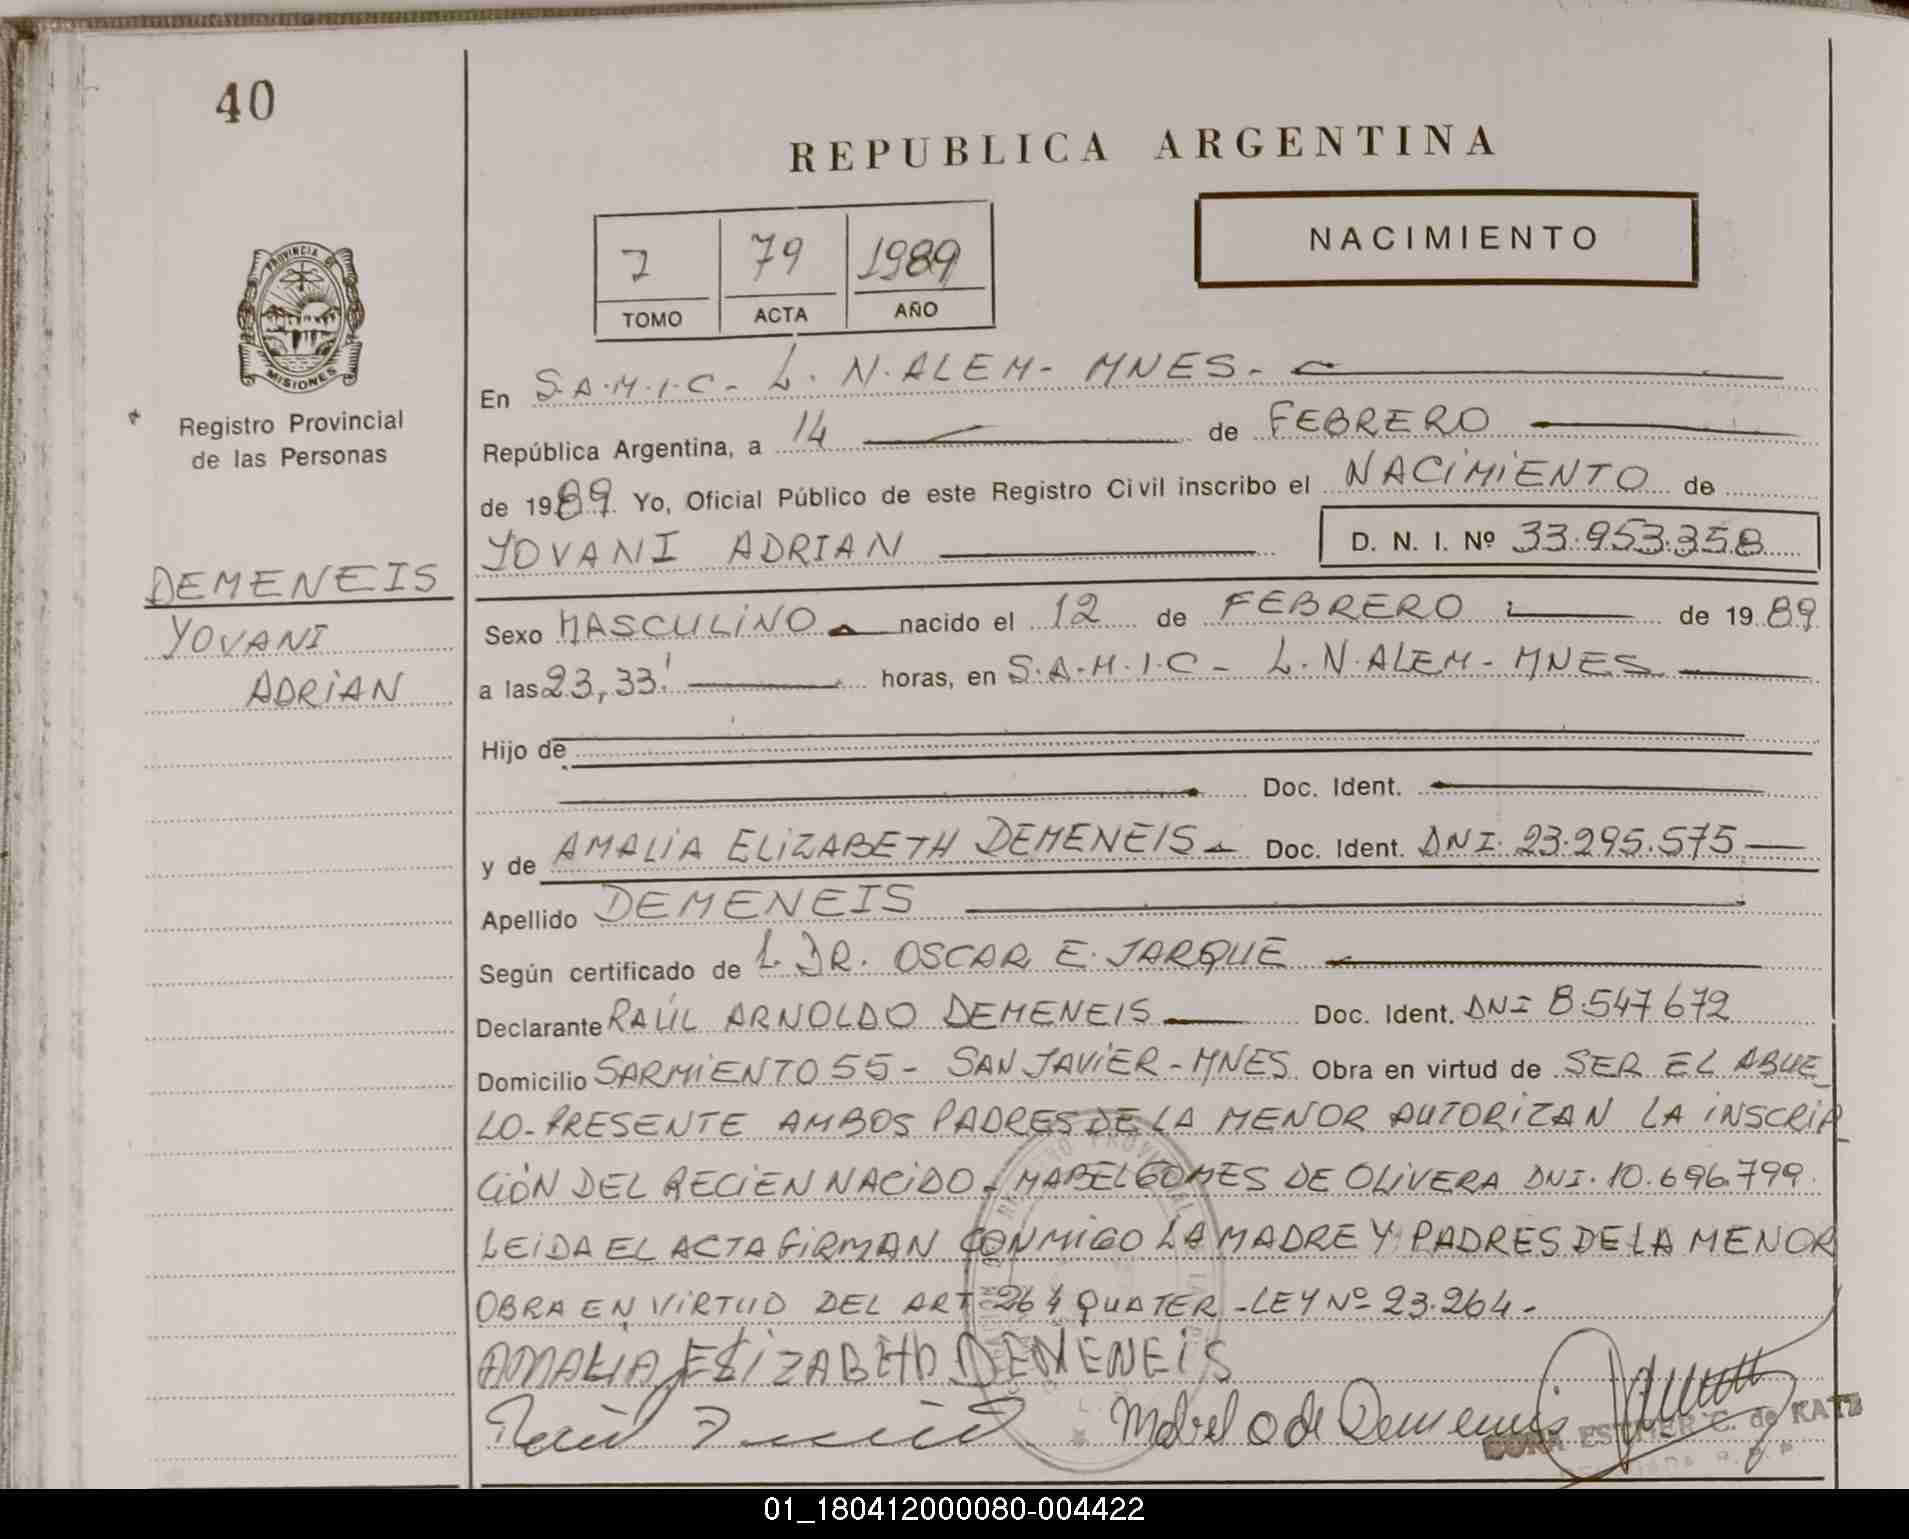 40
REPUBLICA ARGENTINA
NACIMIENTO
79
1989
TOMO
ACTA
AÑO
PROVINCIA DE
MISIONES
Registro Provincial
de las Personas
DEMENEIS
YOVANI
ADRIAN
En S.A.M.I.C- L.N.ALEM- MNES.-
República Argentina, a 14 de FEBRERO
de 1989. Yo, Oficial Público de este Registro Civil inscribo el NACIMIENTO de
YOVANI ADRIAN D. N. I. Nº 33.953.358
Sexo MASCULINO nacido el 12 de FEBRERO de 1989
a las 23,33' horas, en S.A.M.I.C- L.N.ALEM- MNES
Hijo de
Doc. Ident.
y de AMALIA ELIZABETH DEMENEIS Doc. Ident. DNI. 23.295.575
Apellido DEMENEIS
Según certificado de DR. OSCAR E. JARQUE
Declarante RAÚL ARNOLDO DEMENEIS Doc. Ident. DNI 8.547672
Domicilio SARMIENTO 55- SAN JAVIER-MNES. Obra en virtud de SER EL ABUE_
LO-PRESENTE AMBOS PADRES DE LA MENOR AUTORIZAN LA INSCRIP_
CIÓN DEL RECIEN NACIDO- MABEL GOMES DE OLIVERA DNI. 10.696.799.
LEIDA EL ACTA FIRMAN CONMIGO LA MADRE Y PADRES DE LA MENOR
OBRA EN VIRTUD DEL ART 264 QUATER-LEY Nº 23.264-
AMALIA ELIZABETH DEMENEIS
Mabel O de Demeneis
ESTHER C. de KATZ
01_180412000080-004422